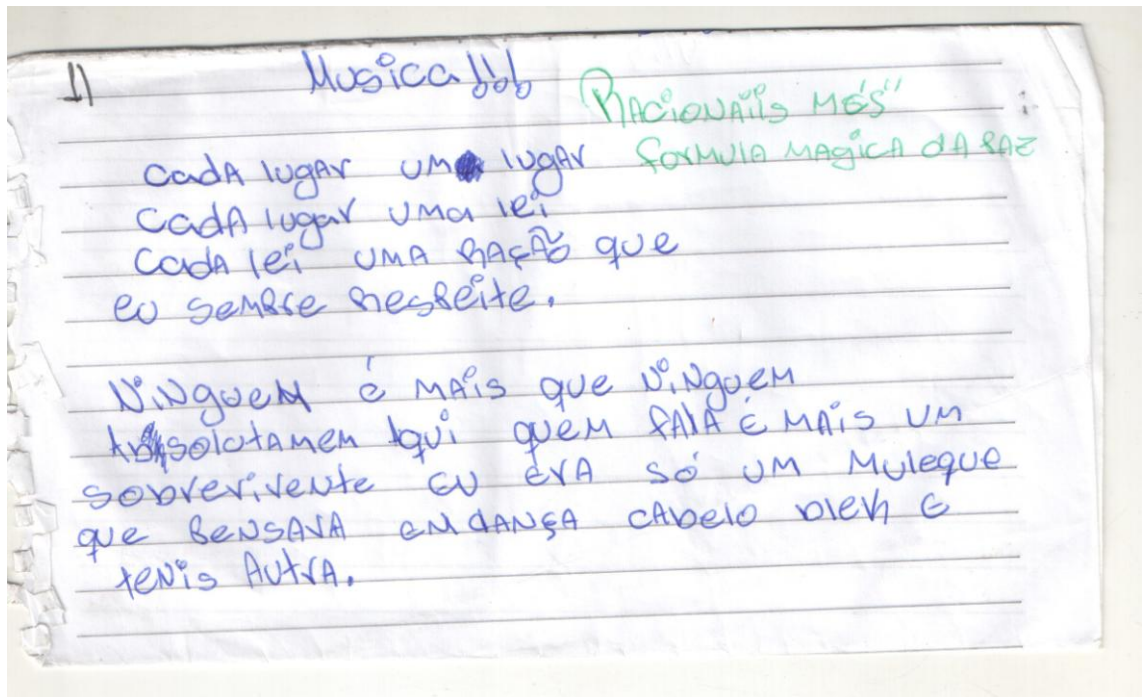 1)
Musica!!!
Racionaiis Més"
formula magica da paz
Cada lugar um lugar
Cada lugar uma lei
Cada lei uma ração que
eu sempre respeite.
Ninguem é mais que ninguem
Absolutamen Aqui quem fala é mais um
sobrevivente eu era só um muleque
que pensava em dança cabelo blek e
tenis Autra.